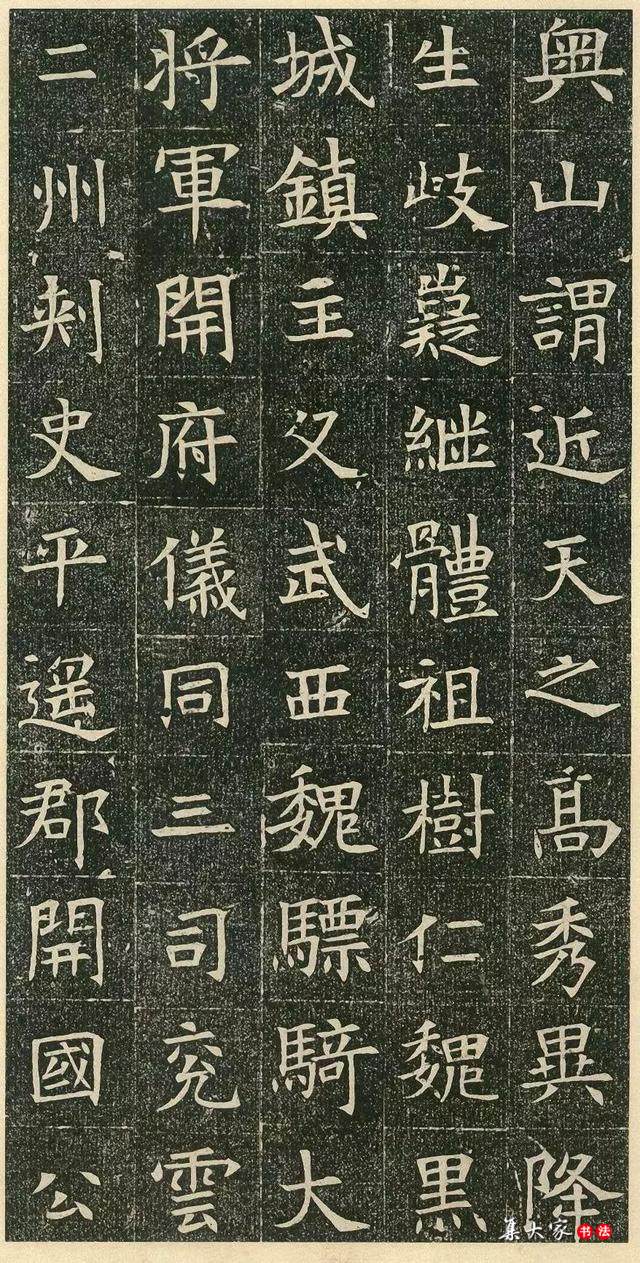 奧山謂近天之髙秀異降
生岐嶷継體祖樹仁魏黑
城鎮主父武西魏驃騎大
將軍開府儀同三司兖雲
二州刾史平遥郡開國公
集大家书法